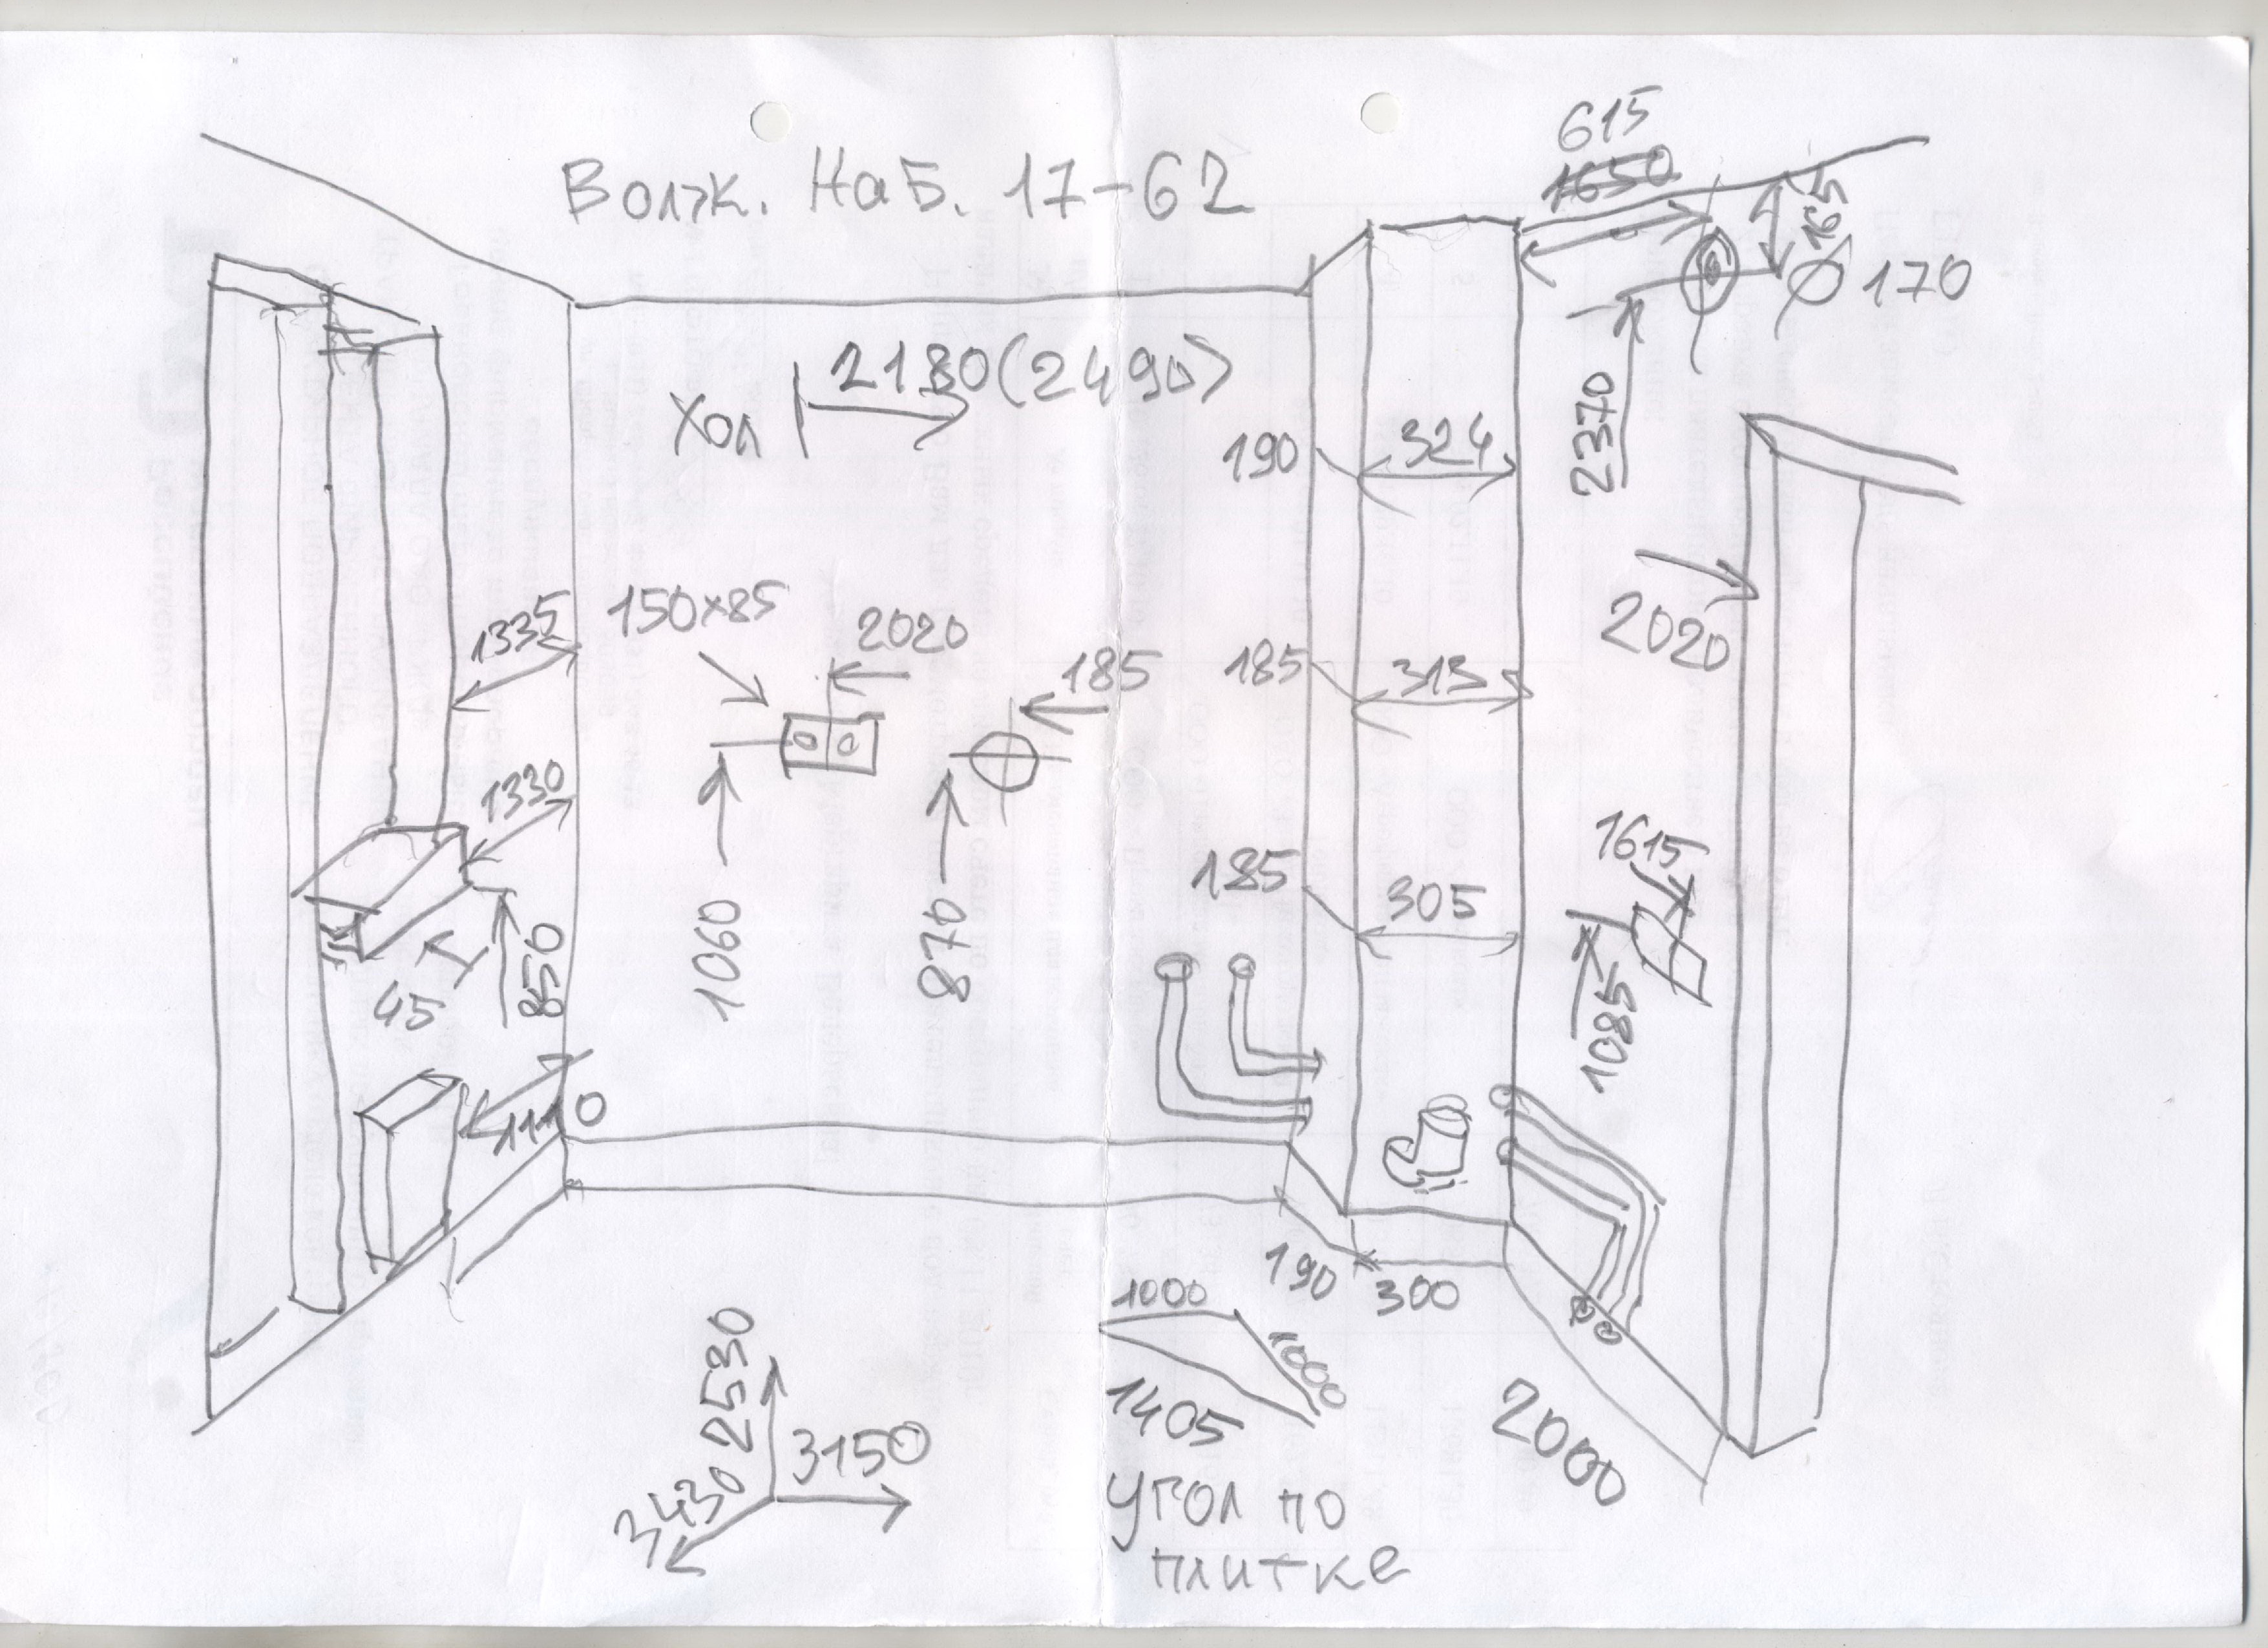 615
1650
Волж. Наб. 17-62
165
Ø 170
2370
Хол 2180(2490)
190 324
1335
150x85
2020
185
185 313
2020
1330
1615
185 305
45
850
1060
870
1085
1110
190 300
1000
1000
1405
2000
2530
3150
3430
угол по
плитке